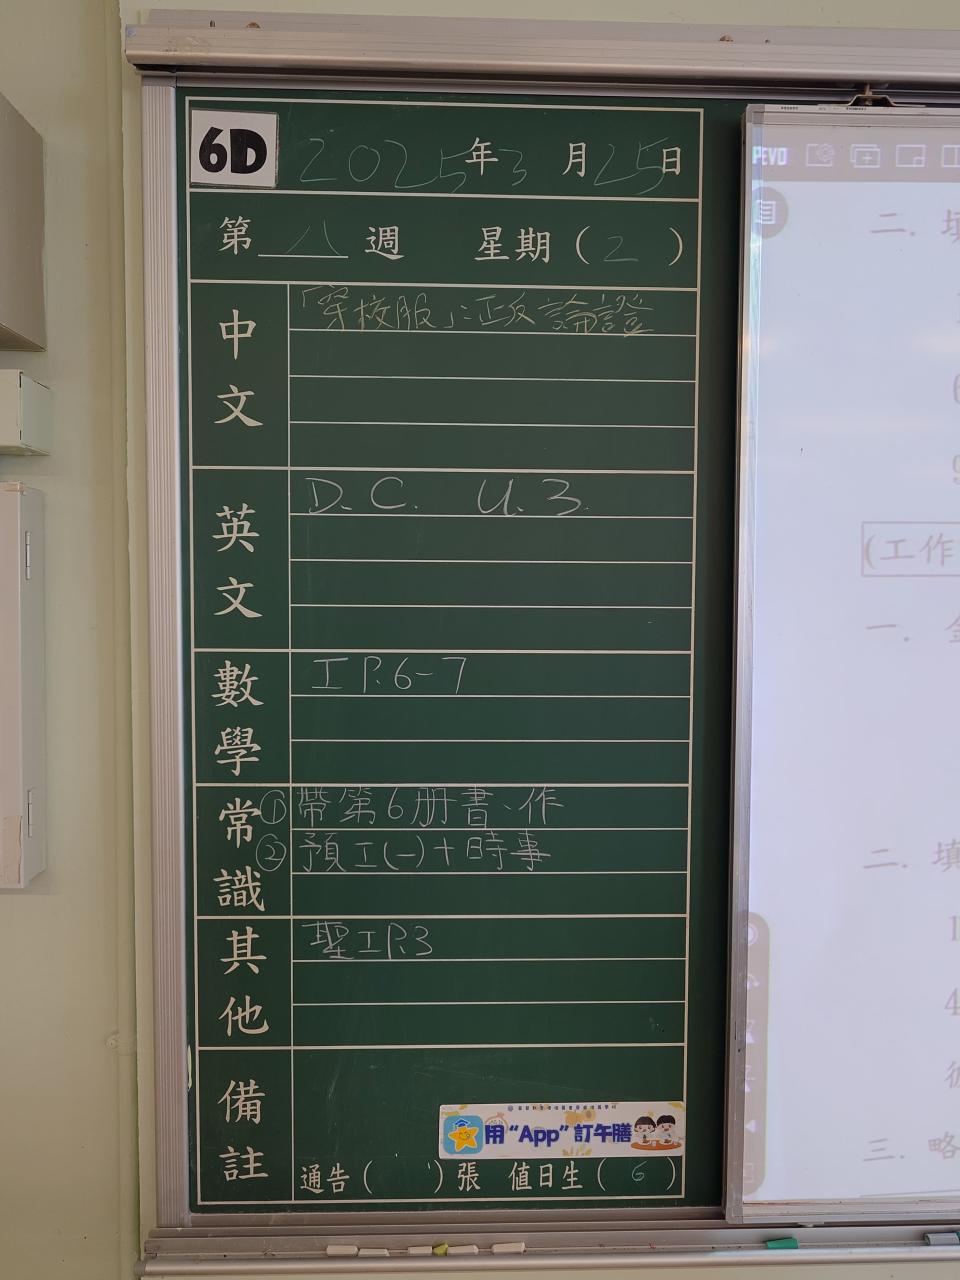 6D 2025年3月25日
第八週 星期(2)
中文
「穿校服」:正反論證
英文
D.C. U.3
數學
工P.6-7
常識
①帶第6册書、作
②預工(一)+時事
其他
聖工P.3
備註
用“App”訂午膳
通告( )張 值日生(6)
二. 填
(工作
一.
二. 填
1
4
三. 略